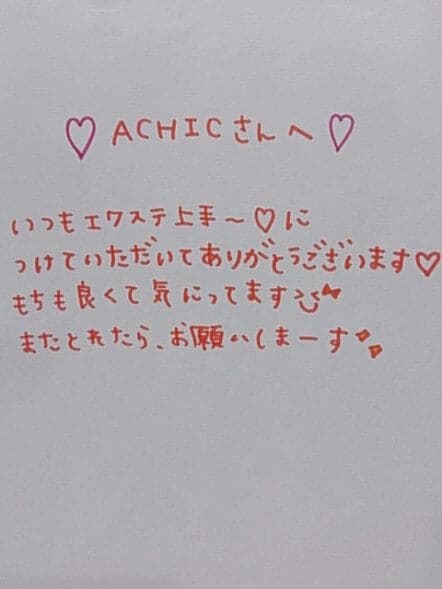 ♡ ACHICさんへ ♡
いつもエクステ上手〜♡に
つけていただいてありがとうございます♡
もちも良くて気にってます
またとれたら、お願いしまーす